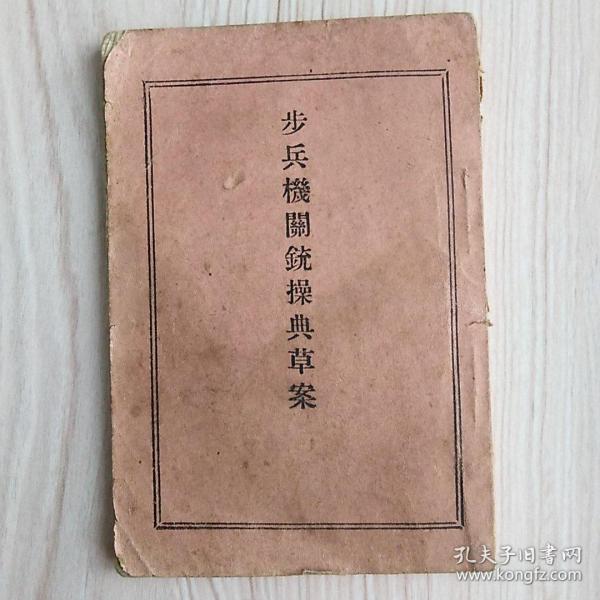 步兵機關銃操典草案
孔夫子旧书网
www.kongfz.com